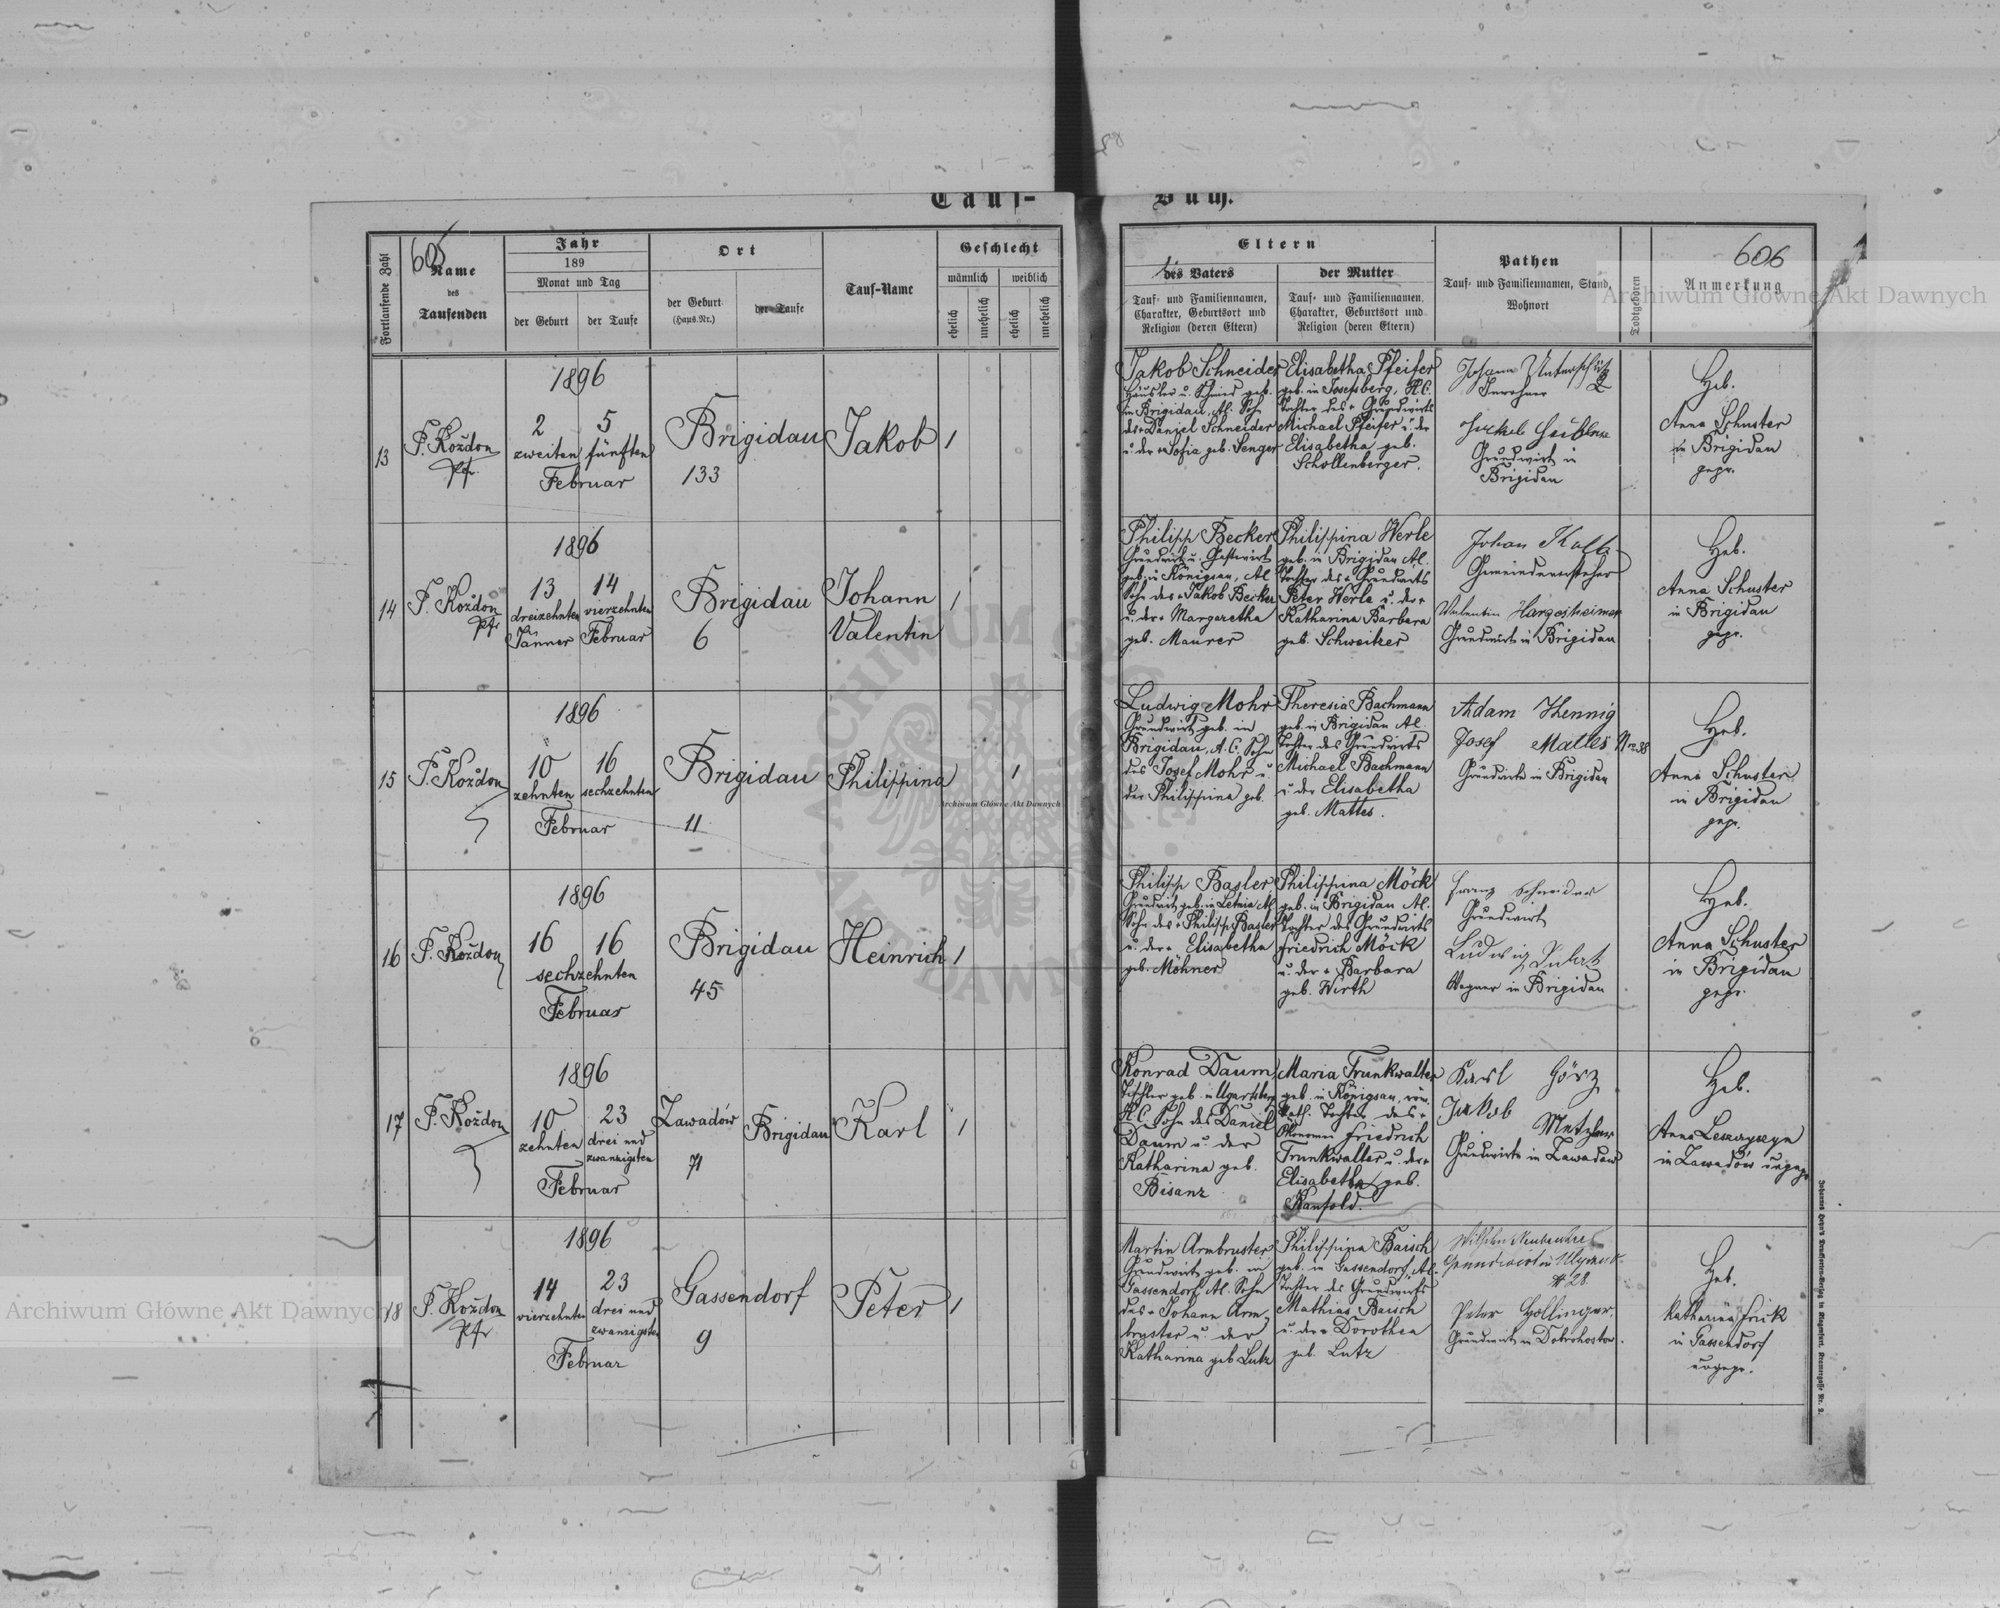 Tauf-
Buch.
605
606
Fortlaufende Zahl
Name
des
Taufenden
Jahr
189
Monat und Tag
der Geburt
der Taufe
Ort
der Geburt
(Haus.Nr.)
der Taufe
Tauf-Name
Geschlecht
männlich
weiblich
ehelich
unehelich
ehelich
unehelich
Eltern
des Vaters
Tauf- und Familiennamen,
Charakter, Geburtsort und
Religion (deren Eltern)
der Mutter
Tauf- und Familiennamen,
Charakter, Geburtsort und
Religion (deren Eltern)
Pathen
Tauf- und Familiennamen, Stand,
Wohnort
Todtgeboren
Anmerkung
13
F. Koždon
Pfr.
1896
2 5
zweiten fünften
Februar
Brigidau
133
Jakob
1
Jakob Schneider
Häusler u. Schmied geb.
in Brigidau, A.C. Sohn
des + Daniel Schneider
u. der + Sofia geb. Senger
Elisabetha Pfeifer
geb. in Josefsberg, H.C.
Tochter des + Grundwirts
Michael Pfeifer u. der
Elisabetha geb.
Schollenberger.
Johann Unterschütz
Inwohner
Grundwirt in
Brigidau
Heb.
Anna Schuster
in Brigidau
gepr.
14
F. Koždon
Pfr
1896
13 14
dreizehnten vierzehnten
Jänner Februar
Brigidau
6
Johann
Valentin
1
Philipp Becker
Grundwirt u. Gastwirt
geb. in Königsau, A.C.
Sohn des + Jakob Becker
u. der + Margaretha
geb. Maurer
Philippina Werle
geb. in Brigidau A.C.
Tochter des + Grundwirts
Peter Werle u. der +
Katharina Barbara
geb. Schweitzer
Johan Kolb
Gemeindevorsteher
Valentin Hargesheimer
Grundwirt in Brigidau
Heb.
Anna Schuster
in Brigidau
gepr.
15
F. Koždon
1896
10 16
zehnten sechzehnten
Februar
Brigidau
11
Philippina
1
Ludwig Mohr
Grundwirt geb. in
Brigidau, A.C. Sohn
des Josef Mohr u
der Philippina geb.
Theresia Bachmann
geb. in Brigidau A.C.
Tochter des Grundwirts
Michael Bachmann
u. der Elisabetha
geb. Mattes.
Adam Hennig
Josef Mattes Nro 38
Grundwirte in Brigidau
Heb.
Anna Schuster
in Brigidau
gepr.
16
F. Koždon
1896
16 16
sechzehnten
Februar
Brigidau
45
Heinrich
1
Philipp Basler
Grundwirt geb. in Letnia A.C.
Sohn des + Philipp Basler
u. der + Elisabetha
geb. Möhner
Philippina Möck
geb. in Brigidau A.C.
Tochter des Grundwirts
Friedrich Möck
u. der + Barbara
geb. Wirth
Franz Schneider
Grundwirt
Ludwig
Wagner in Brigidau
Heb.
Anna Schuster
in Brigidau
gepr.
17
F. Koždon
1896
10 23
zehnten drei und
zwanzigsten
Februar
Zawadów
71
Brigidau
Karl
1
Konrad Daum
Tischler geb. in Ugartsberg
H.C. Sohn des Daniel
Daum u. der
Katharina geb.
Bisanz
Maria Trunkwalter
geb. in Königsau, röm.
kath. Tochter des +
Ökonomen Friedrich
Trunkwalter u. der +
Elisabetha geb.
Manfold.
Karl Görz
Jakob Metzler
Grundwirte in Zawadów
Heb.
Anna Leszczyszyn
in Zawadów ungepr.
18
F. Koždon
Pfr
1896
14 23
vierzehnten drei und
zwanzigsten
Februar
Gassendorf
9
Peter
1
Martin Armbruster
Grundwirt geb. in
Gassendorf, A.C. Sohn
des + Johann Arm-
bruster u. der
Katharina geb Lutz
Philippina Baisch
geb. in Gassendorf, A.C.
Tochter des Grundwirts
Mathias Baisch
u. der + Dorothea
geb. Lutz
Grundwirt in
# 28
Peter Hollinger.
Grundwirt in Dobrohostow.
Heb.
Katharina Frick
in Gassendorf
ungepr.
Archiwum Główne Akt Dawnych
Archiwum Główne Akt Dawnych
Archiwum Główne Akt Dawnych